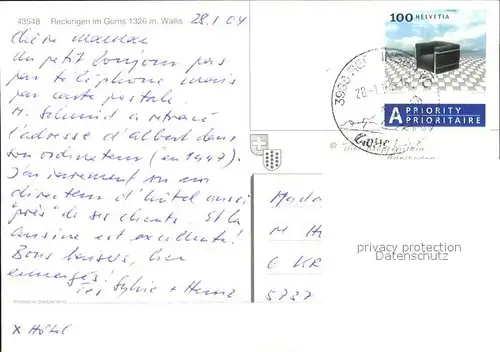 43548 Reckingen im Goms 1326 m, Wallis 28.1.04
Chère Maman
Un petit bonjour pas
par téléphone mais
par carte postale.
M. Schmid a retrouvé
l'adresse d'Albert dans
son ordinateur (en 1997).
J'ai rarement vu un
directeur d'hôtel aussi
"près" de ses clients. Et la
cuisine est excellente!
Bons baisers, bien
Tes Sylvie + Heinz
Printed in Switzerland
x Hôtel
100 HELVETIA
A PRIORITY
PRIORITAIRE
Goms
Mada
M H
6 KR
5737
privacy protection
Datenschutz